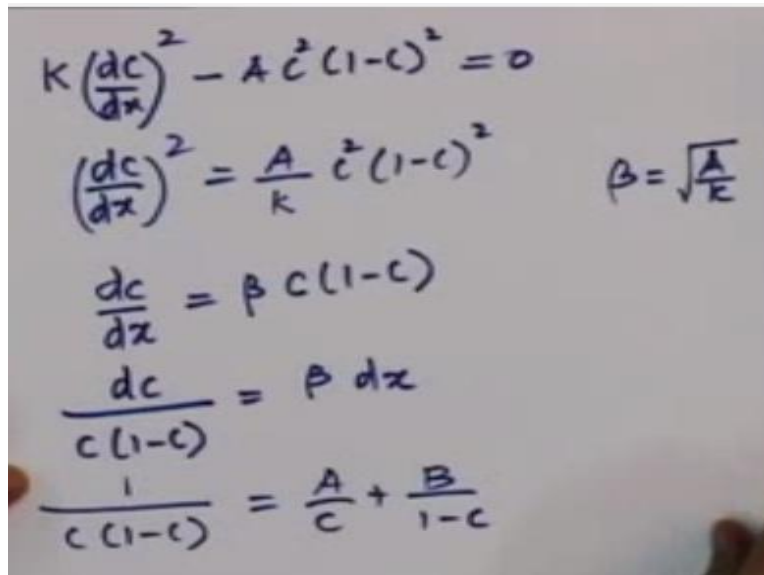 K(dc/dx)² - A c²(1-c)² = 0
(dc/dx)² = A/K c²(1-c)²
β = √(A/K)
dc/dx = β c(1-c)
dc/(c(1-c)) = β dx
1/(c(1-c)) = A/c + B/(1-c)